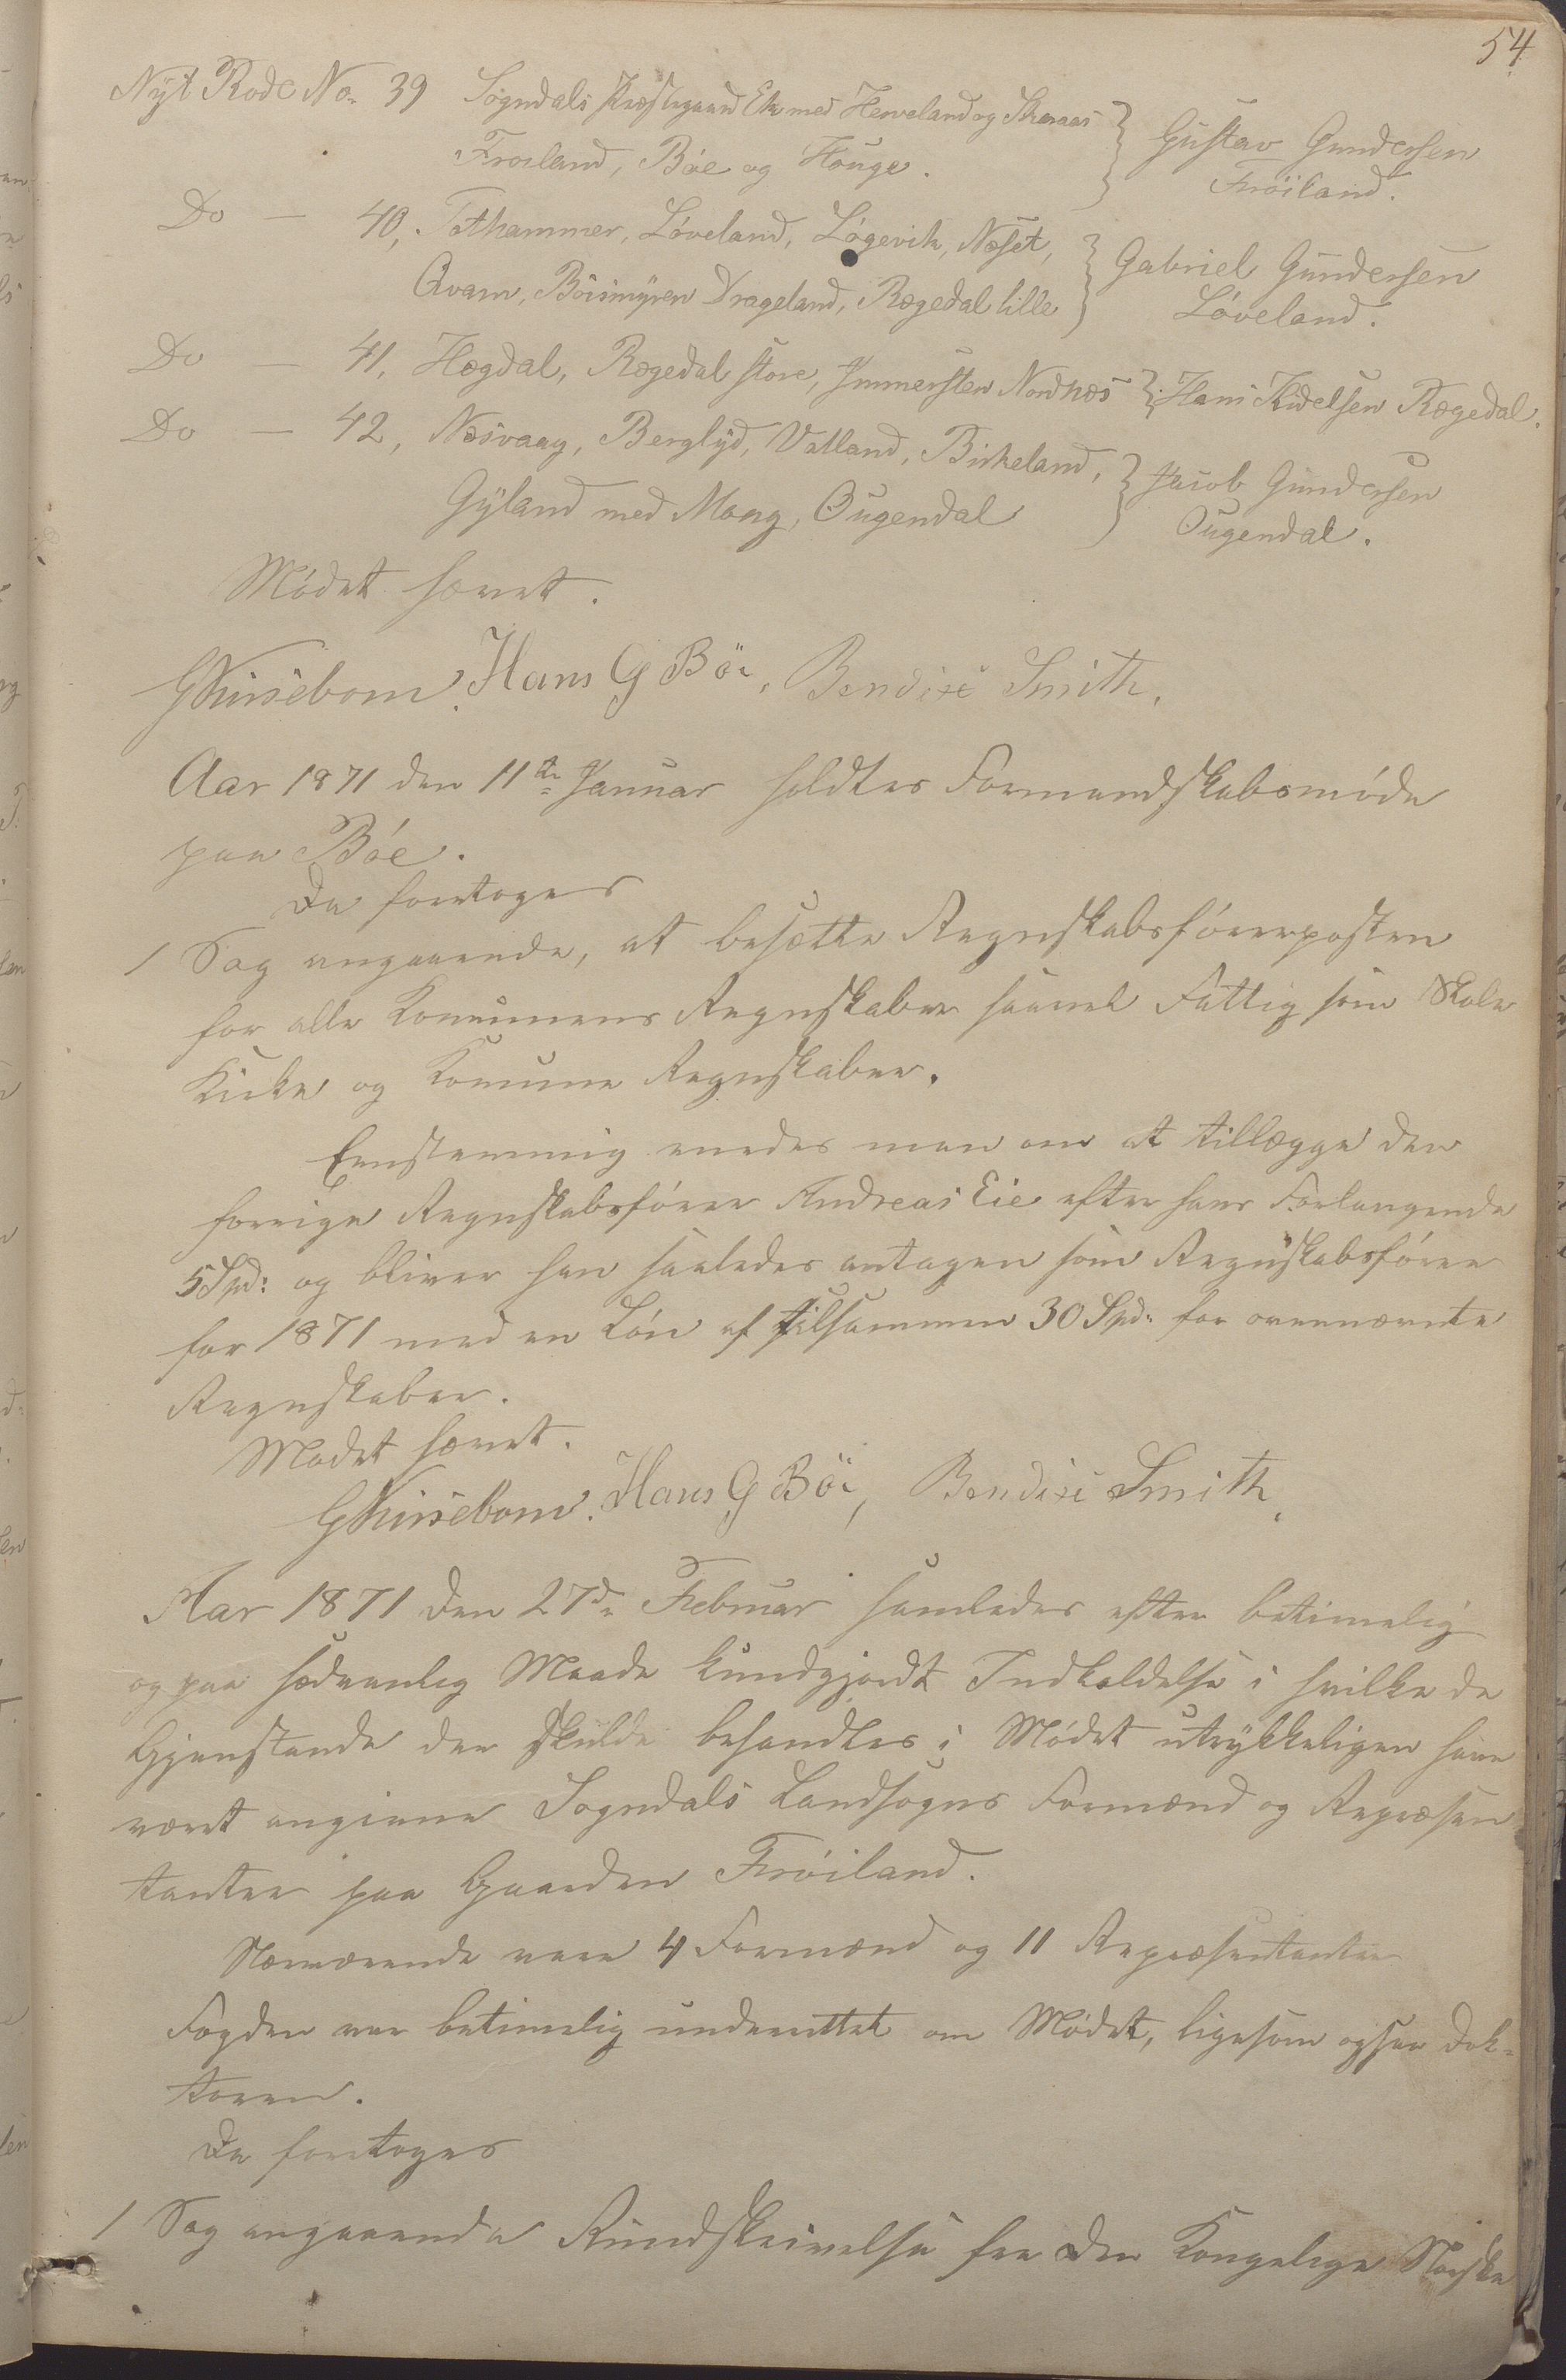 54
Nyt Rode No. 39 Sogndals Præstegaard Eie med Herveland og Skaraas } Gustav Gundersen
Frøiland, Bøe og Houge. Frøiland.
Do — 40, Tothammer, Løveland, Løgevik, Næset, } Gabriel Gundersen
Qvam, Böismyren Drageland, Rægedal lille Løveland.
Do — 41, Hegdal, Rægedal store, Immersten Nordnæs } Hans Kidelsen Rægedal.
Do — 42, Næsvaag, Berglyd, Vatland, Birkeland, } Jacob Gundersen
Gyland med Mong, Ougendal Ougendal.
Mødet hævet.
Hans G Bøe, Bendix Smith.
Aar 1871 den 11te Januar holdtes Formandskabsmøde
paa Bøe.
Da foretoges
1 Sag angaaende, at besætte Regnskabsførerposten
for alle Komunens Regnskaber saavel Fattig som Skole
Kirke og Komune Regnskaber.
Eenstemmig enedes man om at tillægge den
forrige Regnskabsfører Andreas Eie efter hans Forlangende
5 Spd: og bliver han saaledes antagen som Regnskabsfører
for 1871 med en Løn af tilsammen 30 Spd: for ovennævnte
Regnskaber.
Mødet hævet.
Hans G Bøe, Bendix Smith
Aar 1871 den 27de Februar samledes efter betimelig
og paa sædvanlig Maade kundgjordt Indkaldelse i hvilke de
Gjenstande der skulde behandles i Mødet utrykkeligen have
været angivne Sogndals Landsogns Formænd og Repræsen
tanter paa Gaarden Frøiland.
Nærværende vare 4 Formænd og 11 Repræsentanter
Fogden var betimelig underrettet om Mødet, ligesom ogsaa Dok-
toren.
Da foretoges
1 Sag angaaende Rundskrivelse fra Den Kongelige Norske